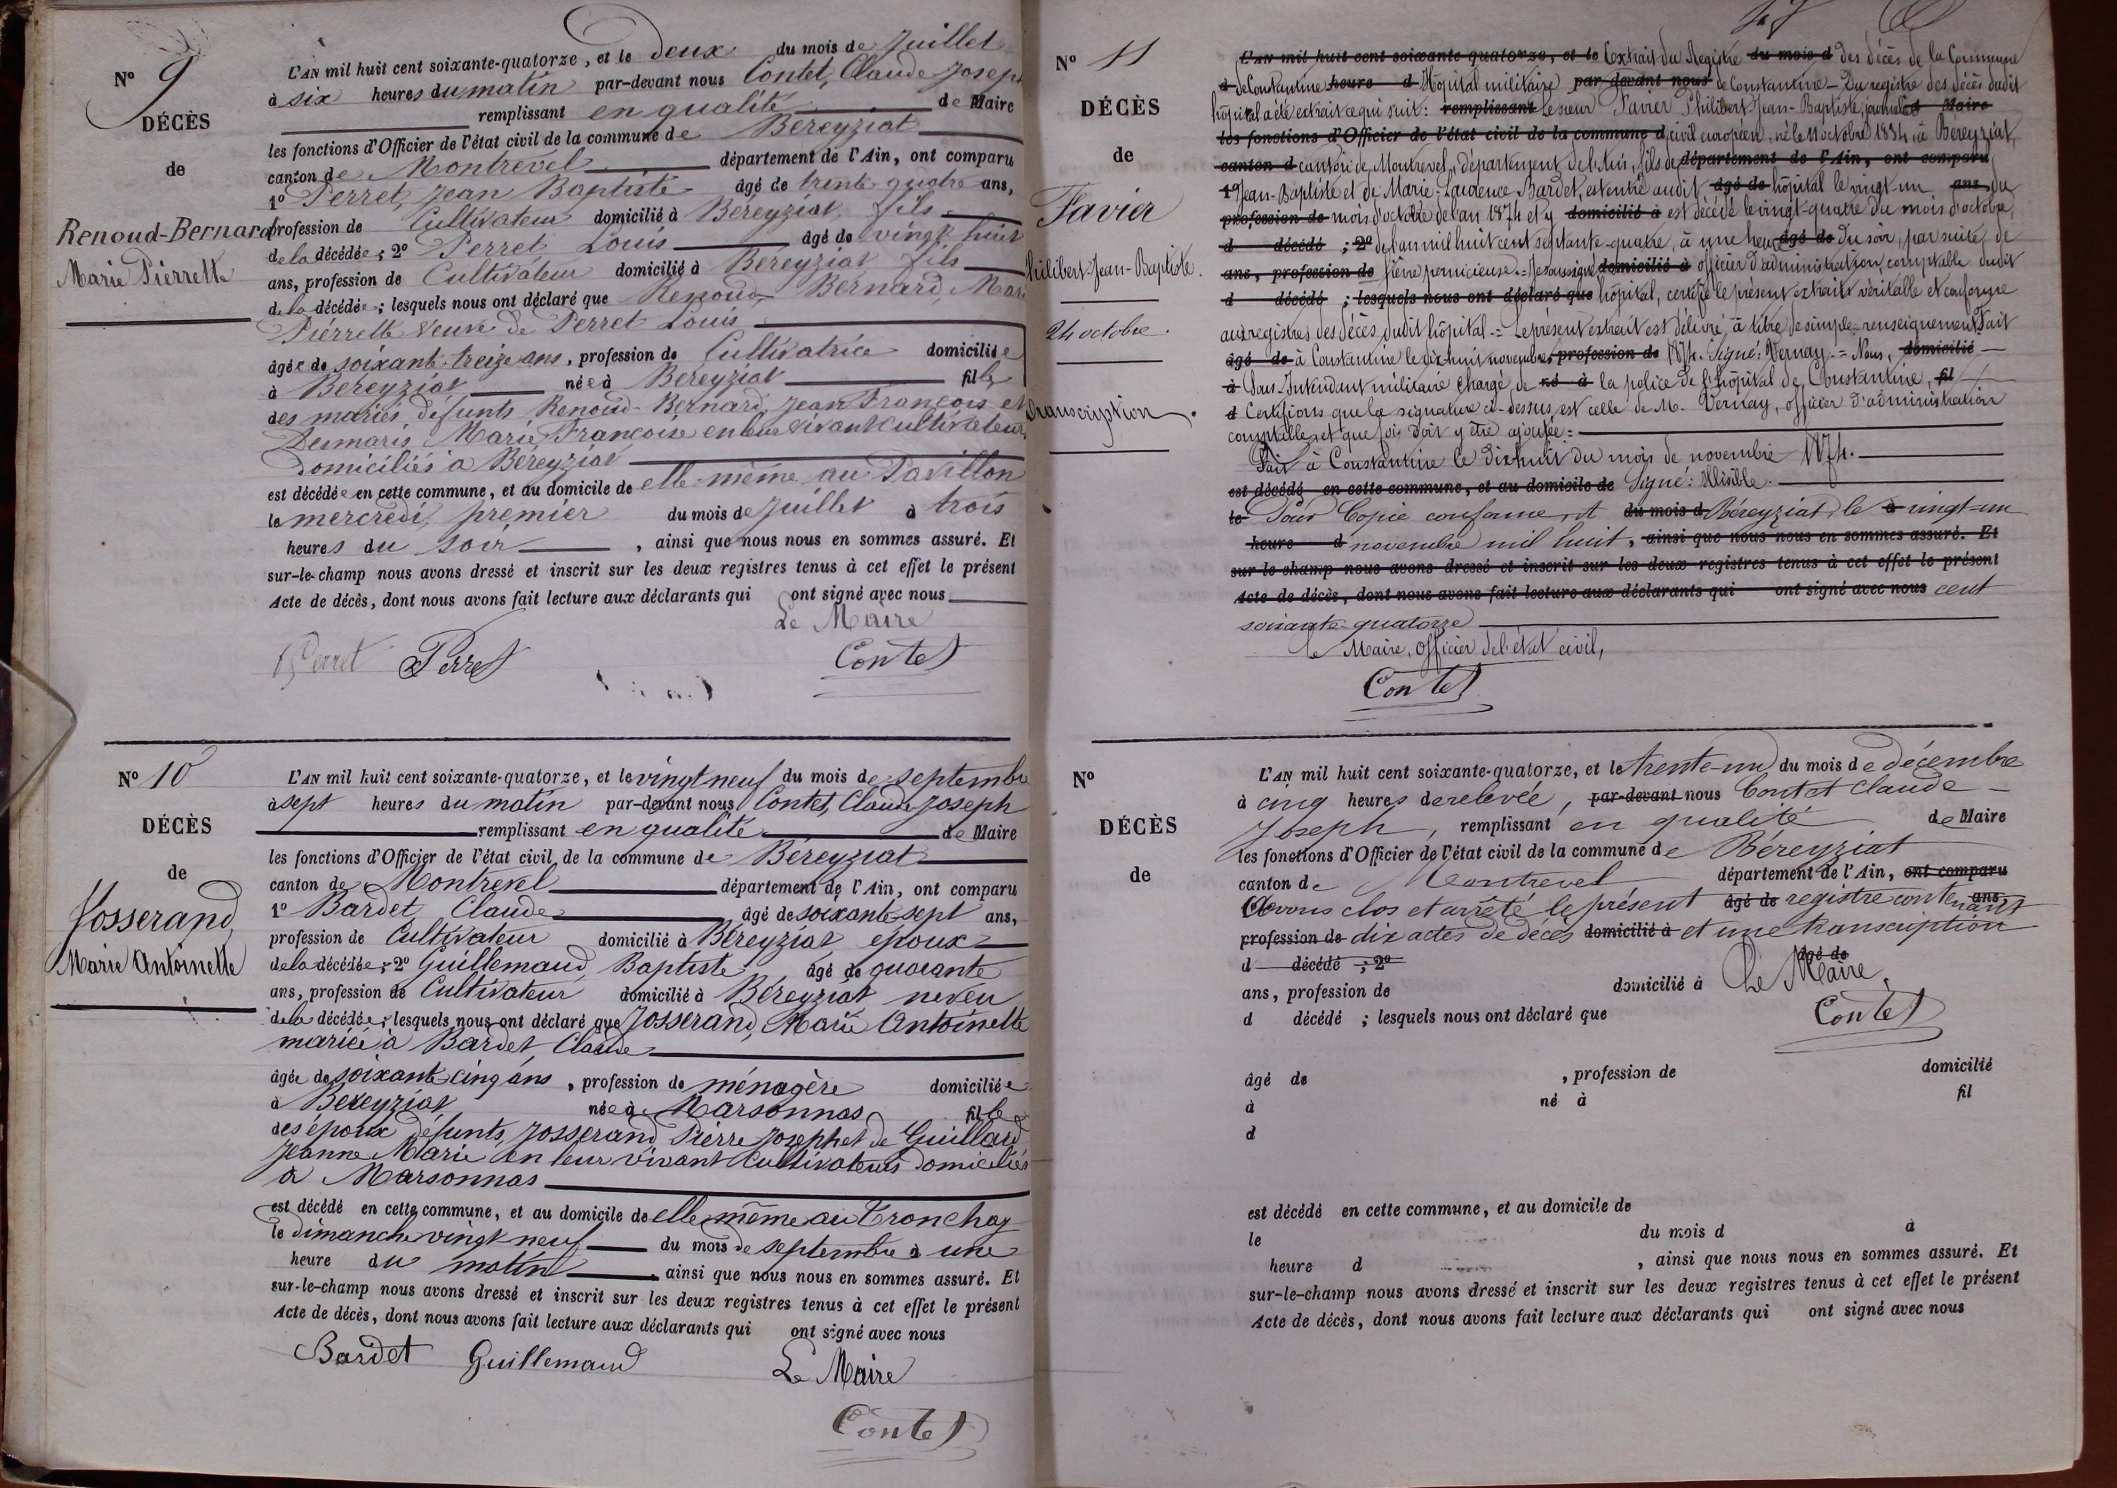 N° 9
DÉCÈS
de
Renoud-Bernard
Marie Pierrette
L'AN mil huit cent soixante-quatorze, et le deux du mois de Juillet
à six heures du matin par-devant nous Contet, Claude Joseph
remplissant en qualité de Maire
les fonctions d'Officier de l'état civil de la commune de Béreyziat
canton de Montrevel département de l'Ain, ont comparu
1° Perret, Jean Baptiste âgé de trente quatre ans,
profession de Cultivateur domicilié à Béreyziat fils
de la décédée; 2° Perret Louis âgé de vingt huit
ans, profession de Cultivateur domicilié à Béreyziat fils
de la décédée; lesquels nous ont déclaré que Renoud-Bernard, Marie
Pierrette veuve de Perret Louis
âgée de soixante-treize ans, profession de Cultivatrice domiciliée
à Béreyziat née à Béreyziat fille
des mariés défunts Renoud-Bernard Jean François et
Desmaris, Marie Françoise en leur vivant cultivateurs
domiciliés à Béreyziat
est décédée en cette commune, et au domicile de elle-même au Pavillon
le mercredi, premier du mois de Juillet à trois
heures du soir, ainsi que nous nous en sommes assuré. Et
sur-le-champ nous avons dressé et inscrit sur les deux registres tenus à cet effet le présent
Acte de décès, dont nous avons fait lecture aux déclarants qui ont signé avec nous
Le Maire
Perret Perret Contet
N° 10
DÉCÈS
de
Josserand
Marie Antoinette
L'AN mil huit cent soixante-quatorze, et le vingt neuf du mois de septembre
à sept heures du matin par-devant nous Contet, Claude Joseph
remplissant en qualité de Maire
les fonctions d'Officier de l'état civil de la commune de Béreyziat
canton de Montrevel département de l'Ain, ont comparu
1° Bardet, Claude âgé de soixante-sept ans,
profession de Cultivateur domicilié à Béreyziat époux
de la décédée; 2° Guillemaud Baptiste âgé de quarante
ans, profession de Cultivateur domicilié à Béreyziat neveu
de la décédée; lesquels nous ont déclaré que Josserand, Marie Antoinette
mariée à Bardet Claude
âgée de soixante cinq ans, profession de ménagère domiciliée
à Béreyziat née à Marsonnas fille
des époux défunts, Josserand Pierre Joseph et de Guillard
Jeanne Marie en leur vivant Cultivateurs domiciliés
à Marsonnas
est décédé en cette commune, et au domicile de elle même au Tronchay
le dimanche vingt neuf du mois de septembre à une
heure du matin, ainsi que nous nous en sommes assuré. Et
sur-le-champ nous avons dressé et inscrit sur les deux registres tenus à cet effet le présent
Acte de décès, dont nous avons fait lecture aux déclarants qui ont signé avec nous
Bardet Guillemaud Le Maire
Contet
N° 11
DÉCÈS
de
Favier
Philibert Jean-Baptiste.
24 octobre.
transcription.
L'AN mil huit cent soixante quatorze, et le Extrait du Registre du mois d des décès de la Commune
d de Constantine heure d Hôpital militaire par devant nous de Constantine - Du registre des décès dudit
hôpital a été extrait ce qui suit: remplissant Le sieur Favier Philibert Jean-Baptiste, journalier Maire
les fonctions d'Officier de l'état civil de la commune d civil européen, né le 11 octobre 1834, à Béreyziat,
canton d canton de Montrevel, département de l'Ain, fils de département de l'Ain, ont comparu
1° Jean-Baptiste et de Marie-Laurence Bardet, est entré audit âgé de hôpital le vingt un ans, du
profession de mois d'octobre de l'an 1874 et y domicilié à est décédé le vingt-quatre du mois d'octobre,
d décédé ; 2° de l'an mil huit cent septante-quatre, à une heure âgé de du soir, par suite de
ans, profession de fièvre pernicieuse.= Je soussigné domicilié à officier d'administration comptable dudit
d décédé ; lesquels nous ont déclaré que hôpital, certifie le présent extrait véritable et conforme
aux registres des décès dudit hôpital.= Le présent extrait est délivré à titre de simple renseignement. Fait
âgé de à Constantine le dix-huit novembre profession de 1874. Signé: Vernay.= Nous, domicilié
à Sous-Intendant militaire chargé de né à la police de l'hôpital de Constantine, fil
d Certifions que la signature ci-dessus est celle de M. Vernay, officier d'administration
comptable, et que foi doit y être ajoutée.=
Fait à Constantine le dix-huit du mois de novembre 1874.
est décédé en cette commune, et au domicile de Signé: Illisible.
le Pour Copie conforme, A du mois d Béreyziat, le à vingt-un
heure d novembre mil huit, ainsi que nous nous en sommes assuré. Et
sur le champ nous avons dressé et inscrit sur les deux registres tenus à cet effet le présent
Acte de décès, dont nous avons fait lecture aux déclarants qui ont signé avec nous cent
soixante-quatorze
Le Maire, officier de l'état civil,
Contet
N°
DÉCÈS
de
L'AN mil huit cent soixante-quatorze, et le trente-un du mois de décembre
à cinq heures de relevée, par-devant nous Contet Claude
Joseph, remplissant en qualité de Maire
les fonctions d'Officier de l'état civil de la commune de Béreyziat
canton de Montrevel département de l'Ain, ont comparu
avons clos et arrêté le présent âgé de registre contenant ans,
profession de dix actes de décès domicilié à et une transcription
d décédé ; 2° âgé de
Le Maire,
ans, profession de domicilié à
d décédé ; lesquels nous ont déclaré que
Contet
âgé de , profession de domicilié
à né à fil
d
est décédé en cette commune, et au domicile de
le du mois d à
heure d , ainsi que nous nous en sommes assuré. Et
sur-le-champ nous avons dressé et inscrit sur les deux registres tenus à cet effet le présent
Acte de décès, dont nous avons fait lecture aux déclarants qui ont signé avec nous